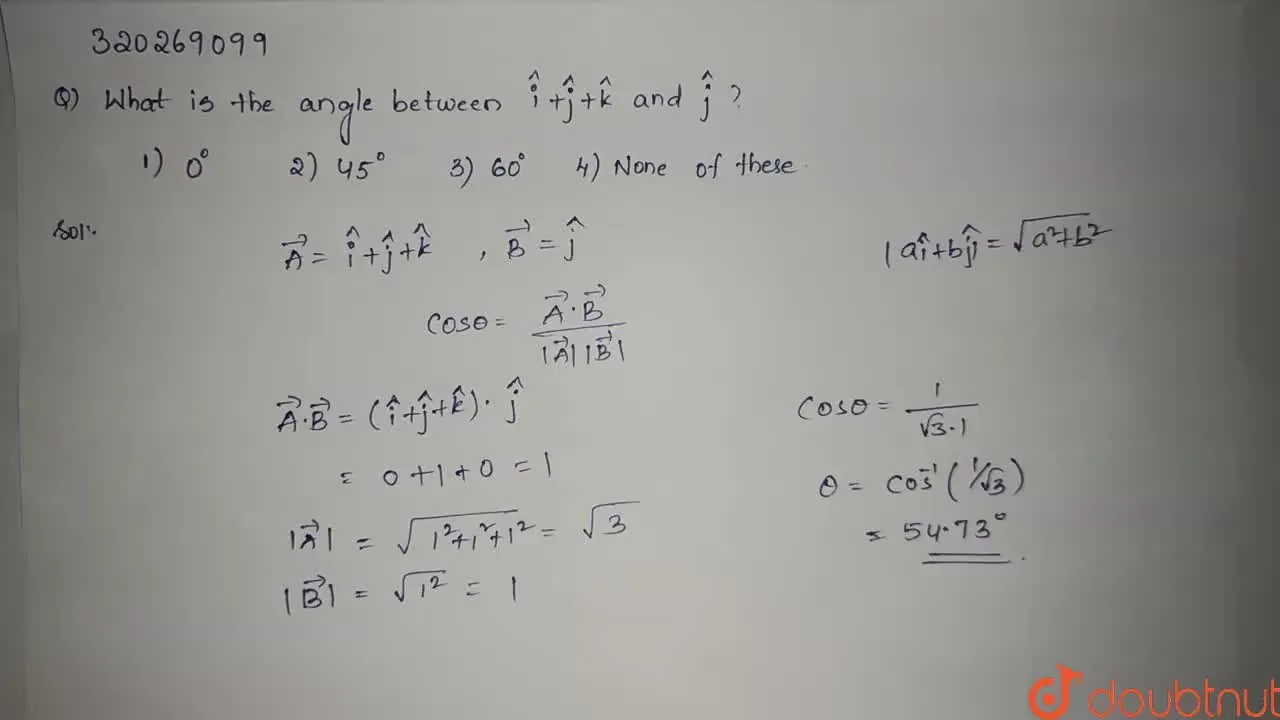 320269099
Q) What is the angle between î+ĵ+k̂ and ĵ ?
1) 0° 2) 45° 3) 60° 4) None of these.
Sol:
A⃗ = î+ĵ+k̂ , B⃗ = ĵ
|aî+bĵ| = √a²+b²
cosθ = A⃗·B⃗ / |A⃗||B⃗|
A⃗·B⃗ = (î+ĵ+k̂)· ĵ
= 0+1+0 = 1
|A⃗| = √1²+1²+1² = √3
|B⃗| = √1² = 1
cosθ = 1/√3·1
θ = cos⁻¹(1/√3)
= 54.73°.
doubtnut